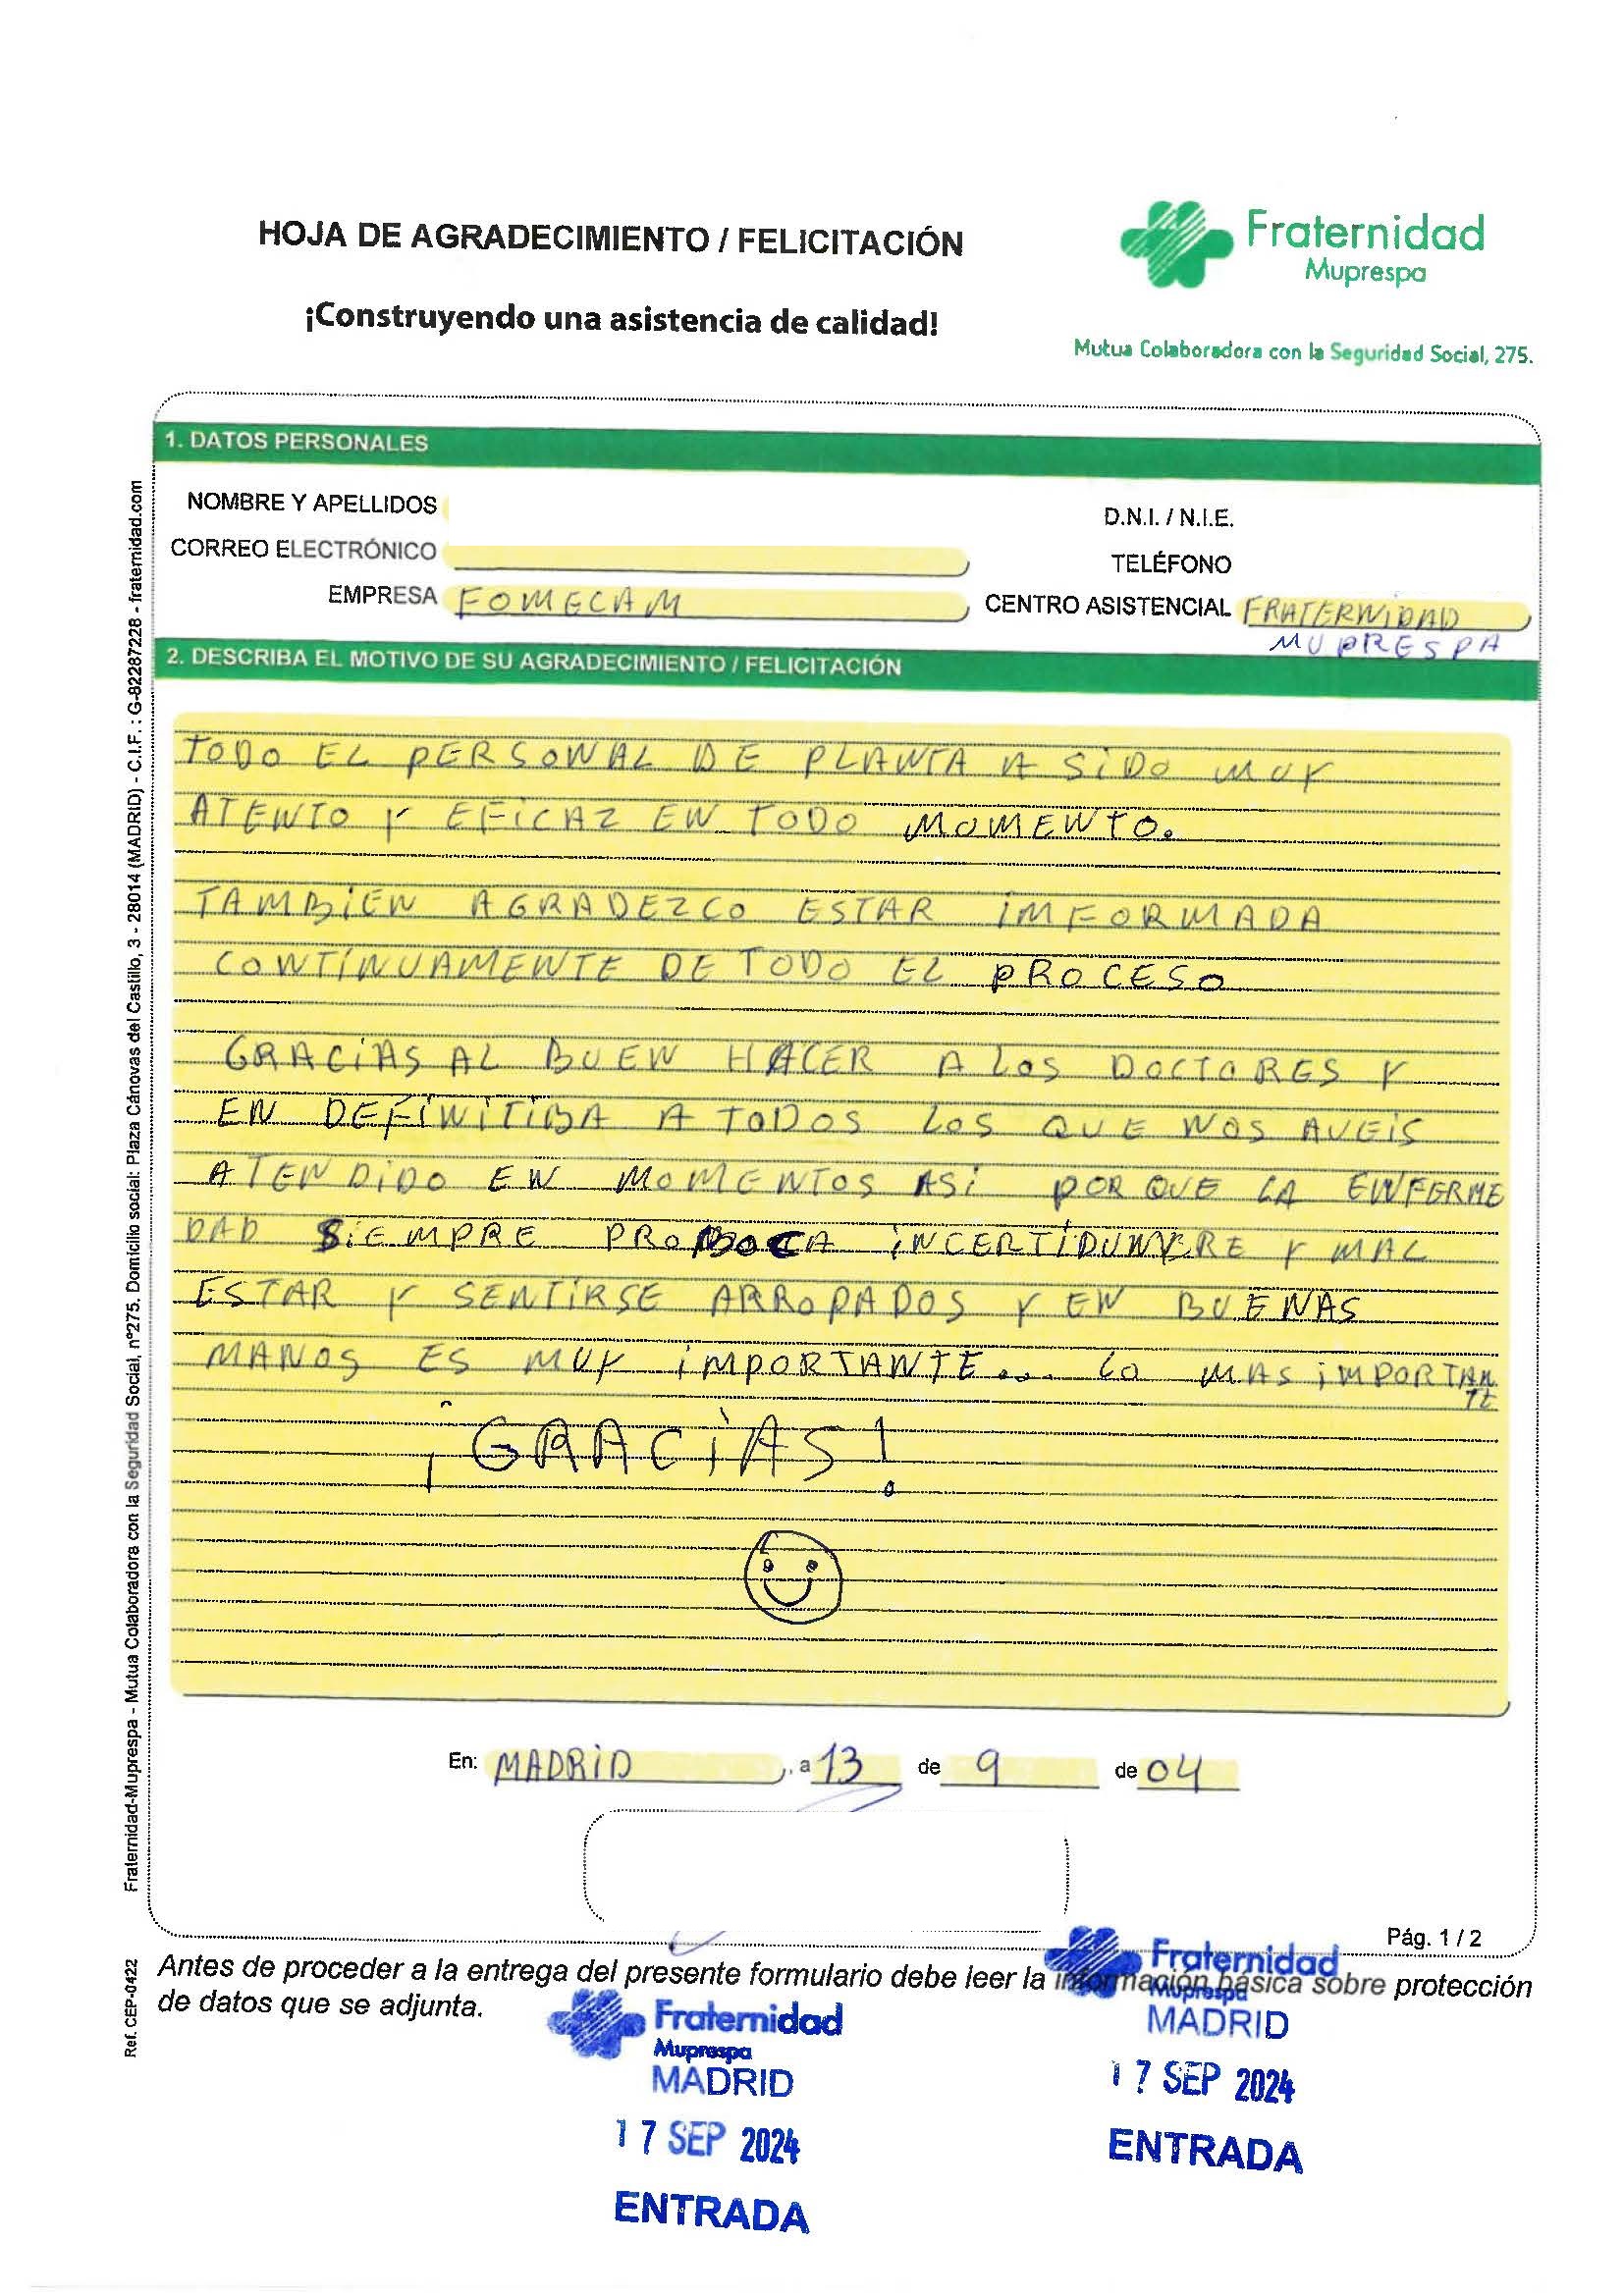 HOJA DE AGRADECIMIENTO / FELICITACIÓN
¡Construyendo una asistencia de calidad!
Fraternidad
Muprespa
Mutua Colaboradora con la Seguridad Social, 275.
1. DATOS PERSONALES
NOMBRE Y APELLIDOS
D.N.I. / N.I.E.
CORREO ELECTRÓNICO
TELÉFONO
EMPRESA FOMECAM
CENTRO ASISTENCIAL FRATERNIDAD
MUPRESPA
2. DESCRIBA EL MOTIVO DE SU AGRADECIMIENTO / FELICITACIÓN
TODO EL PERSONAL DE PLANTA A SIDO MUY
ATENTO Y EFICAZ EN TODO MOMENTO.
TAMBIEN AGRADEZCO ESTAR IMFORMADA
CONTINUAMENTE DE TODO EL PROCESO
GRACIAS AL BUEN HACER A LOS DOCTORES Y
EN DEFINITIBA A TODOS LOS QUE NOS AVEIS
ATENDIDO EN MOMENTOS ASI PORQUE LA ENFERME
DAD SIEMPRE PROBOCA INCERTIDUMVRE Y MAL
ESTAR Y SENTIRSE ARROPADOS Y EN BUENAS
MANOS ES MUY IMPORTANTE... LO MAS IMPORTAN
TE
¡GRACIAS!
En: MADRID, a 13 de 9 de 04
Pág. 1 / 2
Antes de proceder a la entrega del presente formulario debe leer la información básica sobre protección
de datos que se adjunta.
Fraternidad
Muprespa
MADRID
17 SEP 2024
ENTRADA
Fraternidad
Muprespa
MADRID
17 SEP 2024
ENTRADA
Fraternidad-Muprespa - Mutua Colaboradora con la Seguridad Social, nº275. Domicilio social: Plaza Cánovas del Castillo, 3 - 28014 (MADRID) - C.I.F. : G-82287228 - fraternidad.com
Ref. CEP-0422